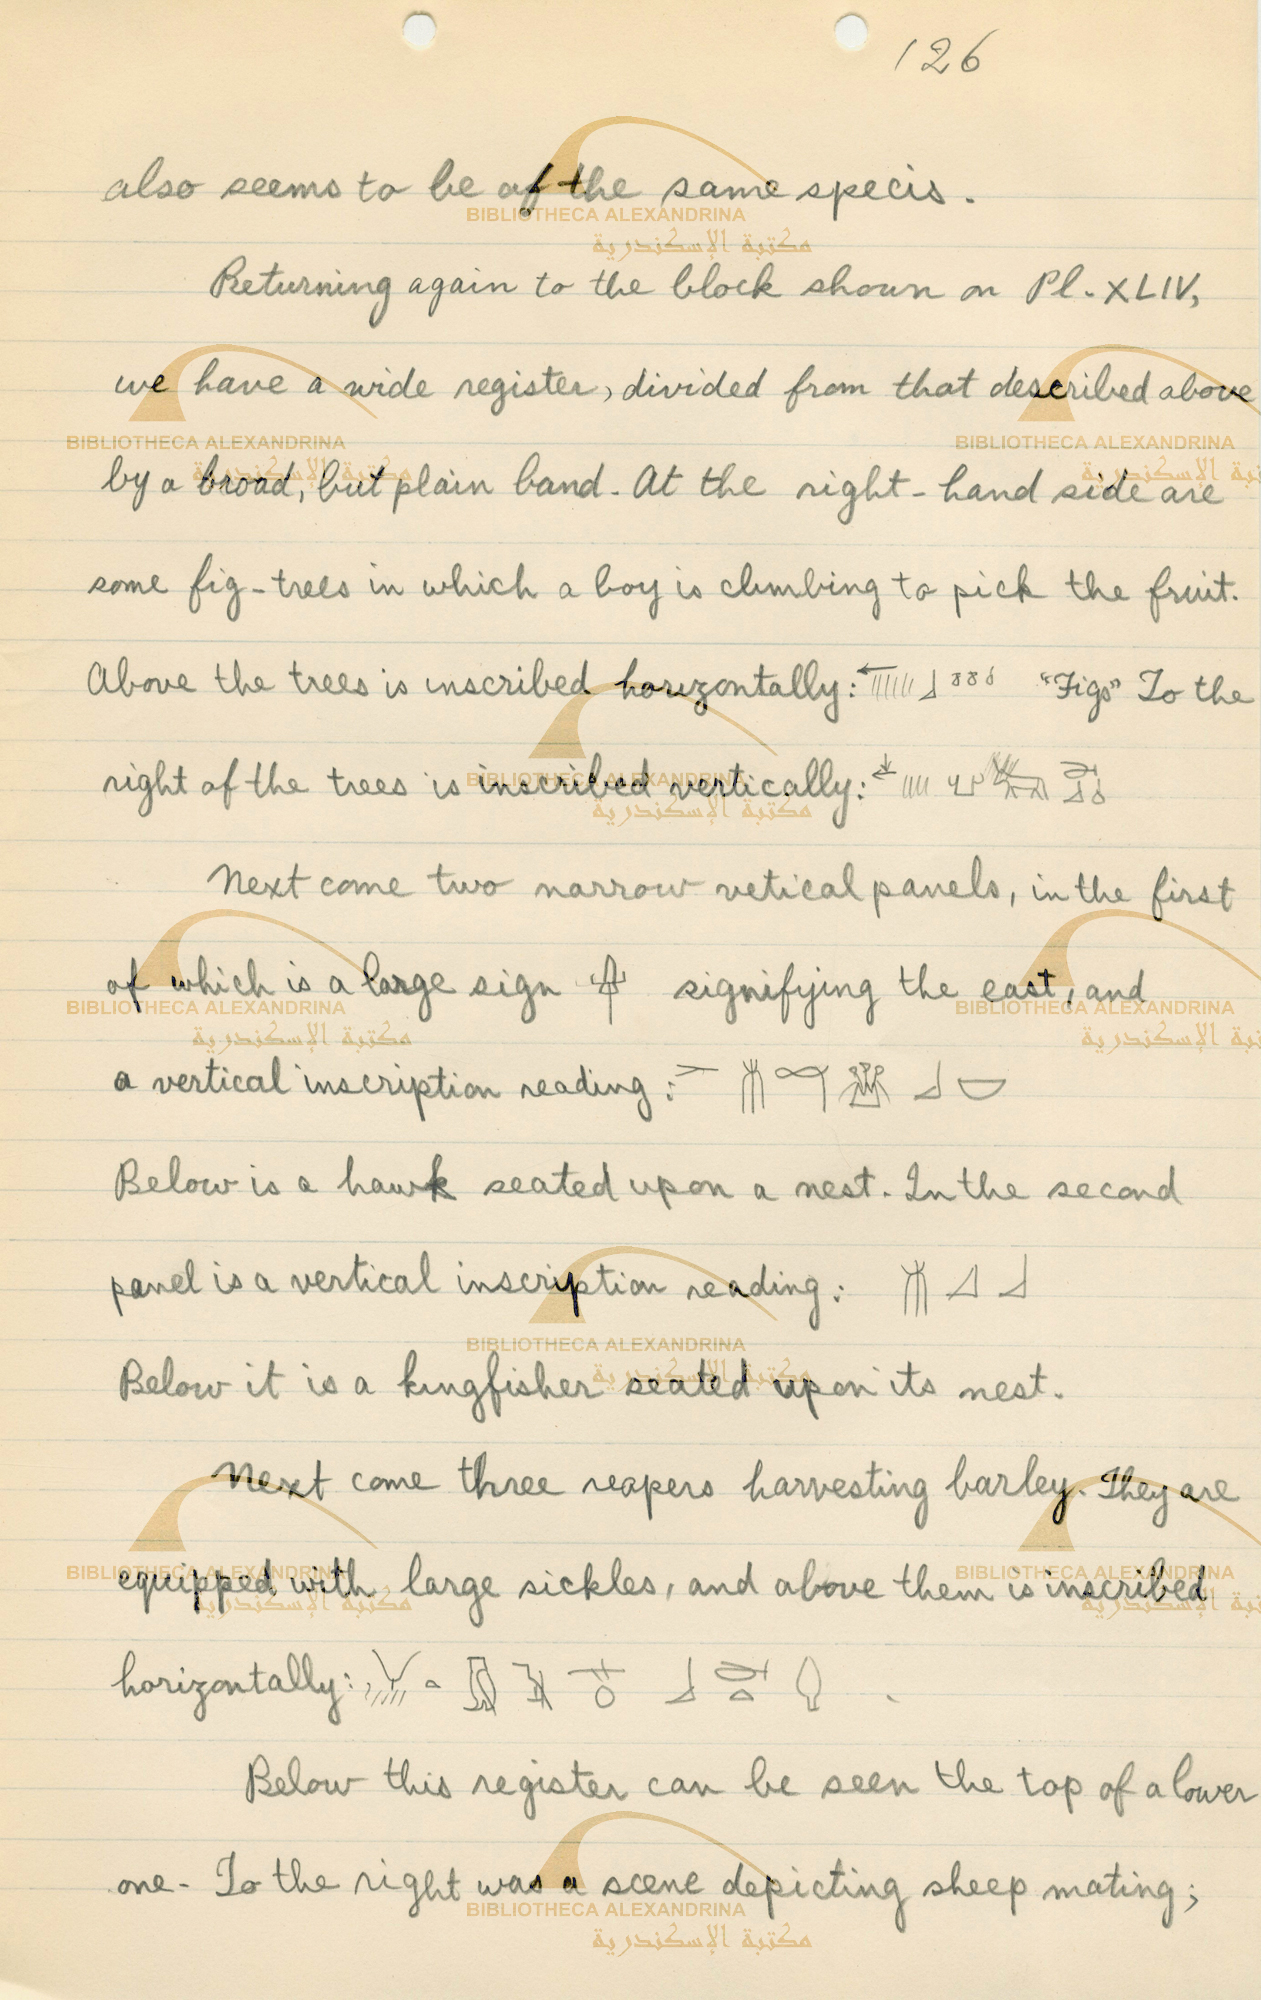 126
also seems to be of the same specis.
Returning again to the block shown on Pl. XLIV,
we have a wide register, divided from that described above
by a broad, but plain band. At the right-hand side are
some fig-trees in which a boy is climbing to pick the fruit.
Above the trees is inscribed horizontally: "Figs" To the
right of the trees is inscribed vertically:
Next come two narrow vetical panels, in the first
of which is a large sign signifying the east, and
a vertical inscription reading:
Below is a hawk seated upon a nest. In the second
panel is a vertical inscription reading:
Below it is a kingfisher seated upon its nest.
Next come three reapers harvesting barley. They are
equipped with large sickles, and above them is inscribed
horizontally:
Below this register can be seen the top of a lower
one. To the right was a scene depicting sheep mating;